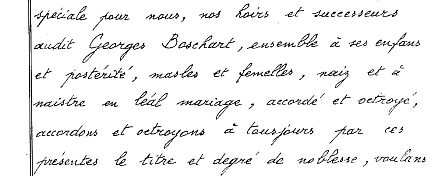 spéciale pour nous, nos hoirs et successeurs
audit Georges Boschart, ensemble à ses enfans
et postérité, masles et femelles, naiz et à
naistre en léal mariage, accordé et octroyé,
accordons et octroyons à tousjours par ces
présentes le titre et degré de noblesse, voulans